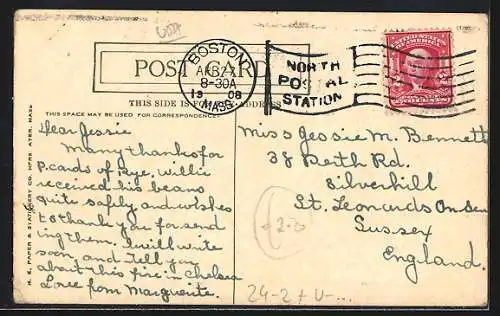 BOSTON
APR 27
8-30A
19 08
MASS.
NORTH
POSTAL
STATION
UNITED STATES
OF AMERICA
TWO CENTS
POST CARD
THIS SIDE IS FOR ADDRESS
THIS SPACE MAY BE USED FOR CORRESPONDENCE
Dear Jessie
Many thanks for
p.cards of Rye, Willie
received his beans
quite safely and wishes
to thank you for send
ing them. I will write
soon and tell you
about this fire in Chelsea
Love from Marguerite.
Miss Jessie M. Bennett
38 Reith Rd.
Silverhill
St. Leonards On Sea
Sussex
England.
N. E. PAPER & STATIONERY CO. AYER, MASS